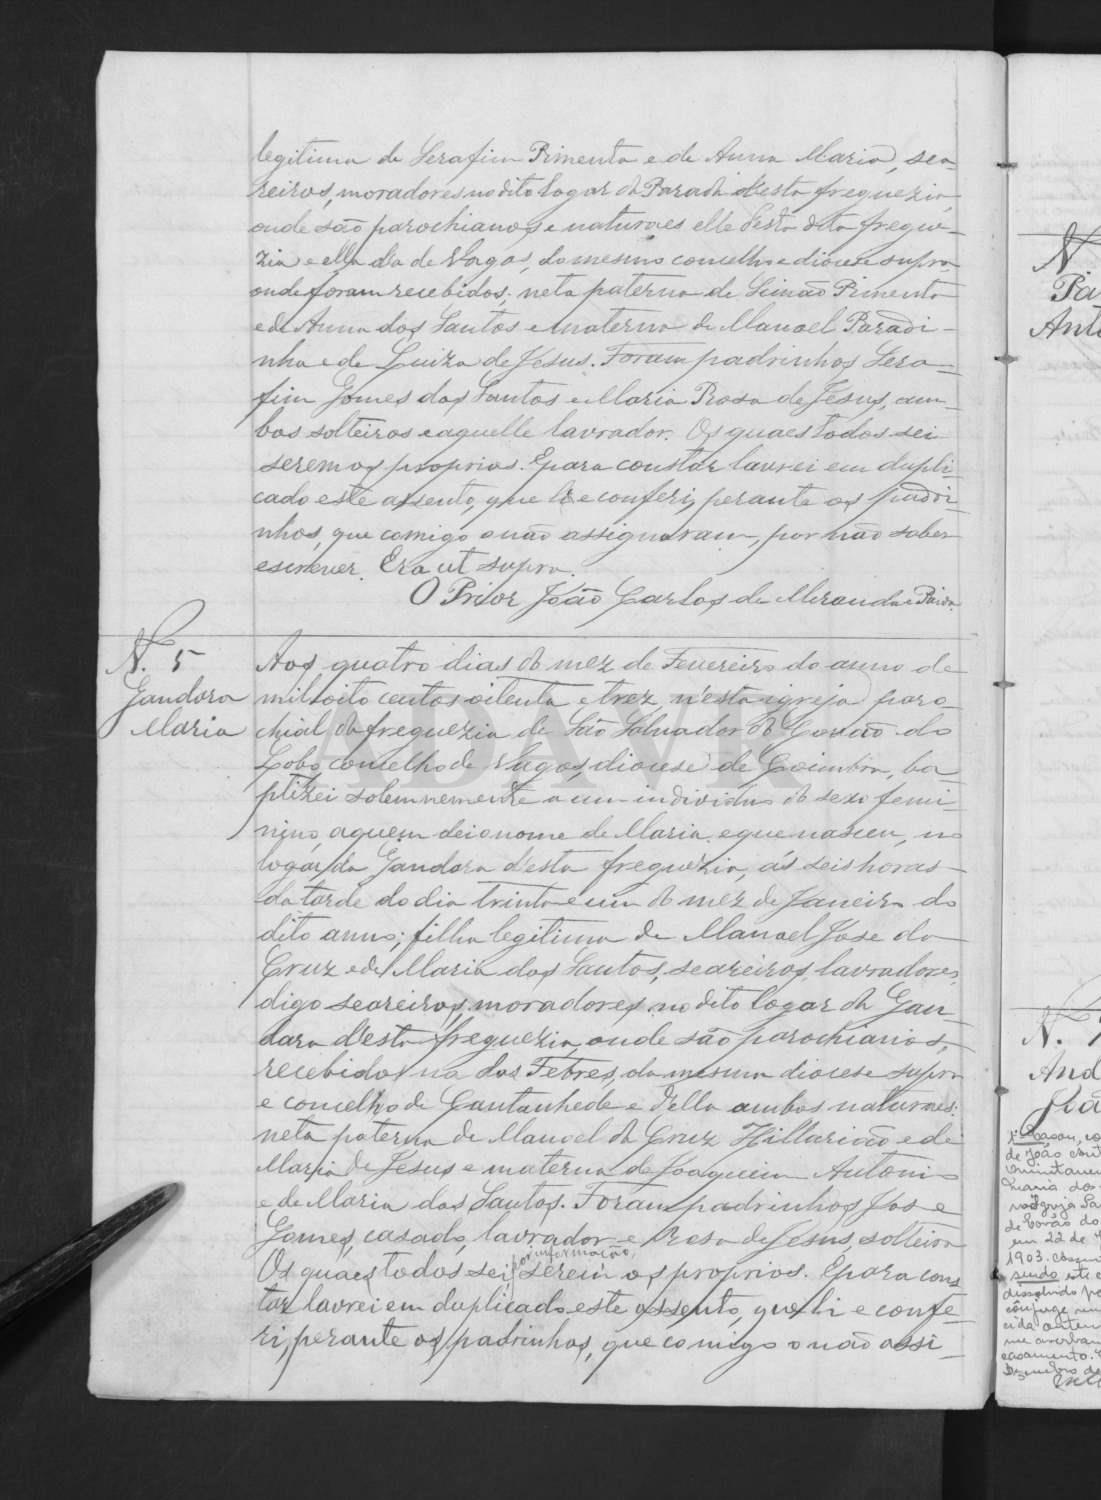 legitima de Serafim Pimenta e de Anna Maria, sea-
reiros, moradores no dito logar da Parada d'esta freguezia,
onde são parochianos e naturaes elle d'esta dita fregue-
zia e ella da de Vagos, do mesmo concelho e diocese supra
onde foram recebidos; neta paterna de Simão Pimenta
e de Anna dos Santos e materna de Manoel Paradi-
nha e de Luiza de Jesus. Foram padrinhos Sera-
fim Gomes dos Santos e Maria Rosa de Jesus, am-
bos solteiros e aquelle lavrador. Os quaes todos sei
serem os proprios. E para constar lavrei em dupli-
cado este assento, que li e conferi, perante os padri-
nhos, que comigo o não assignaram, por não saber
escrever. Era ut supra.
O Prior João Carlos de Miranda e Paiva.
N. 5
Gandara
Maria
Aos quatro dias do mez de Fevereiro do anno de
mil oito centos oitenta e trez, n'esta igreja paro-
chial da freguezia de São Salvador de Covão do
Lobo, concelho de Vagos, diocese de Coimbra, ba-
ptizei solemnemente a um individuo do sexo femi-
nino, a quem dei o nome de Maria e que nasceu, no
logar da Gandara d'esta freguezia, ás seis horas
da tarde do dia trinta e um do mez de Janeiro do
dito anno; filha legitima de Manoel Jose da
Cruz e de Maria dos Santos, seareiros, lavradores,
digo seareiros, moradores, no dito logar da Gan-
dara d'esta freguezia, onde são parochianos,
recebidos na dos Febres, da mesma diocese supra
e concelho de Cantanhede e d'ella ambos naturaes;
neta paterna de Manoel da Cruz Hillarião e de
Maria de Jesus e materna de Joaquim Antonio
e de Maria dos Santos. Foram padrinhos Jose
Gomes, casado, lavrador e Rosa de Jesus, solteira
Os quaes todos sei, por informação, serem os proprios. E para cons-
tar lavrei em duplicado este assento, que li e confe-
ri, perante os padrinhos, que comigo o não assi-
ADAVR
N
Pa
Anto
N. 7
And
Joã
1º Casou, co
de João
Maria do
na Igreja Pa
de Covão do
em 22 de
1903.
sendo este
dissolvido po
cônjuge
cida
me averbam
casamento.
Dezembro de